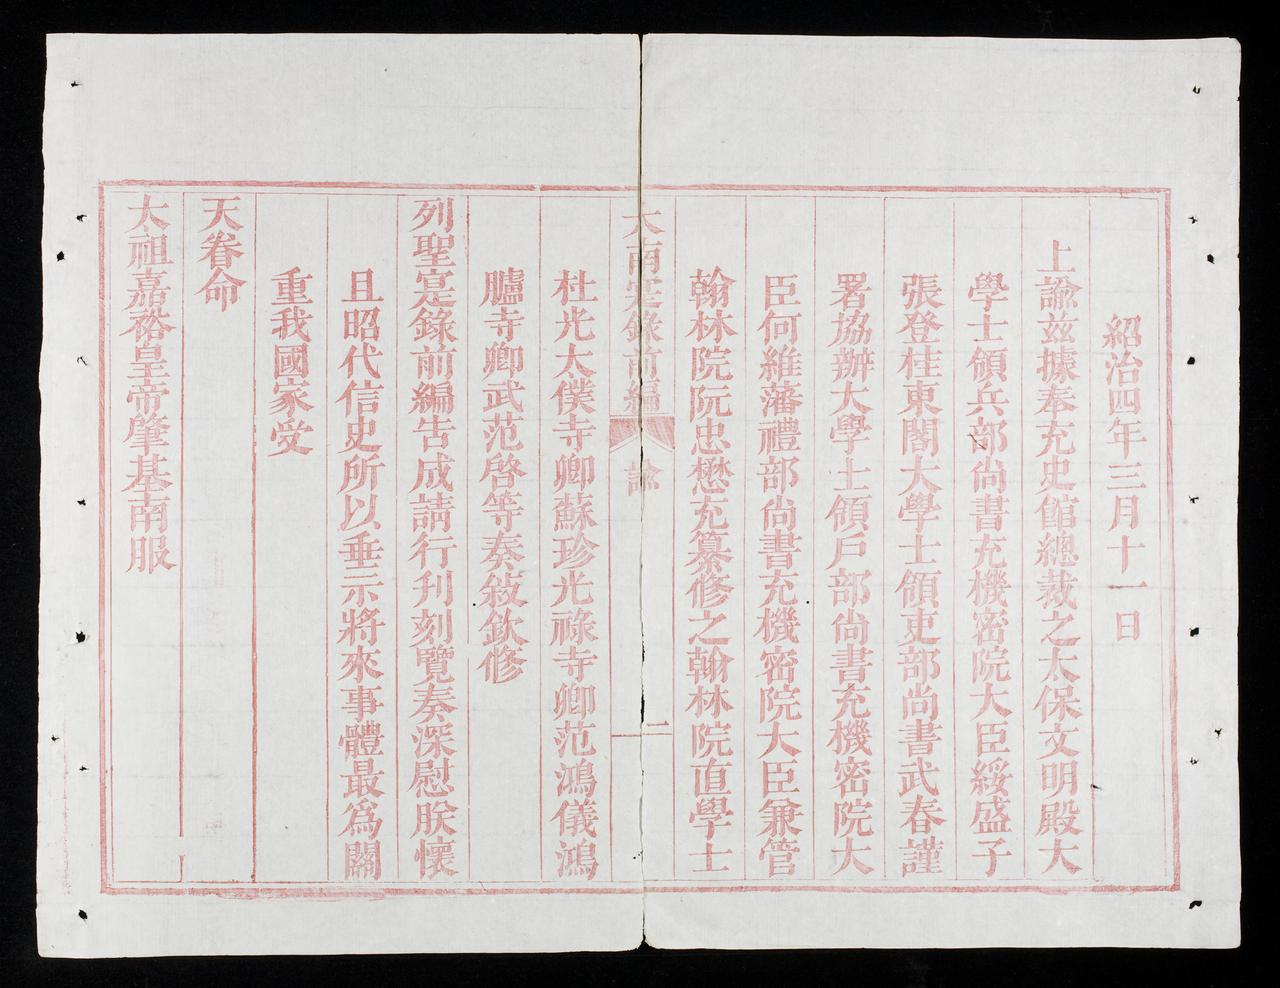 紹治四年三月十一日
上諭茲據奉充史館總裁之太保文明殿大
學士領兵部尚書充機密院大臣綏盛子
張登桂東閣大學士領吏部尚書武春謹
署協辦大學士領戶部尚書充機密院大
臣何維藩禮部尚書充機密院大臣兼管
翰林院阮忠懋充纂修之翰林院直學士
大南寔錄前編 諭 一
杜光太僕寺卿蘇珍光祿寺卿范鴻儀鴻
臚寺卿武范啓等奏敍欽修
列聖寔錄前編告成請行刋刻覽奏深慰朕懷
且昭代信史所以垂示將來事體最爲關
重我國家受
天眷命
太祖嘉裕皇帝肇基南服